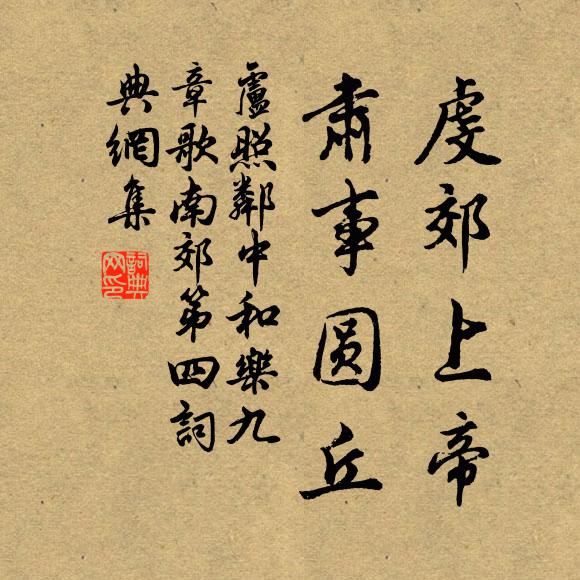 虔郊上帝
肅事圓丘
盧照鄰中和樂九
章歌南郊第四詞
典網集
詞典网印